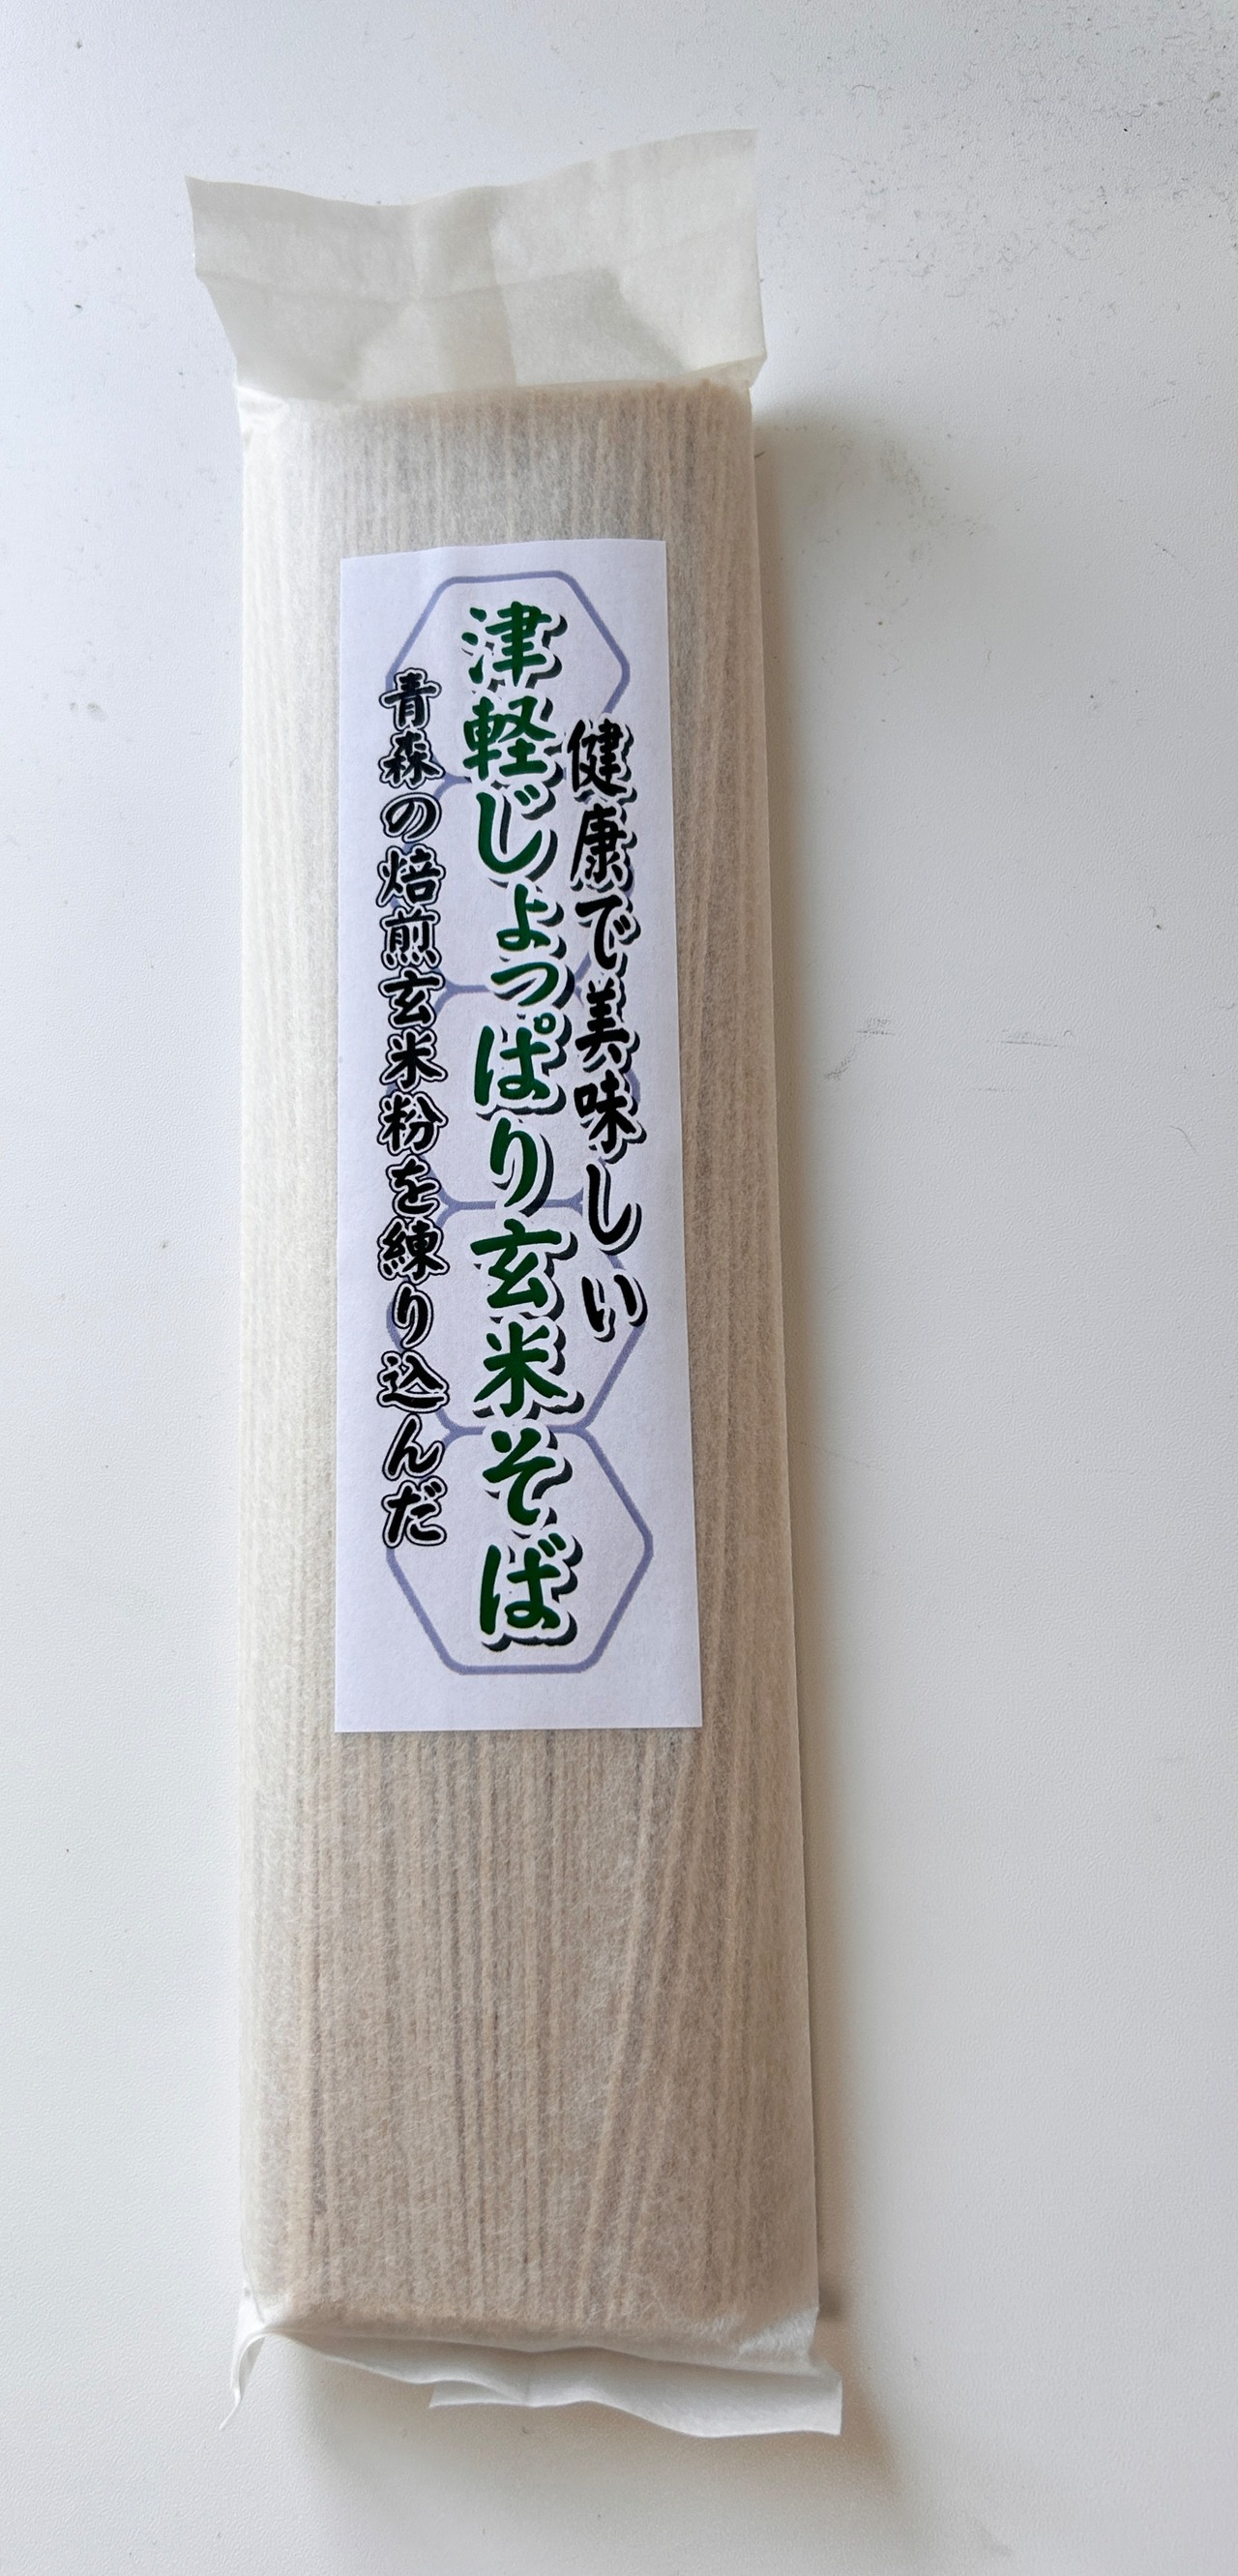 健康で美味しい
津軽じょっぱり玄米そば
青森の焙煎玄米粉を練り込んだ